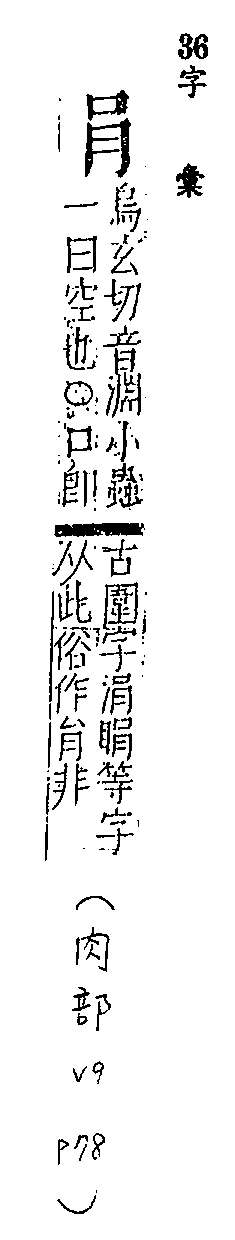 36字彙
肙
烏玄切音淵小蟲
一曰空也○口卽
古圍字涓睊等字
从此俗作肙非
(肉部 v9 p78)